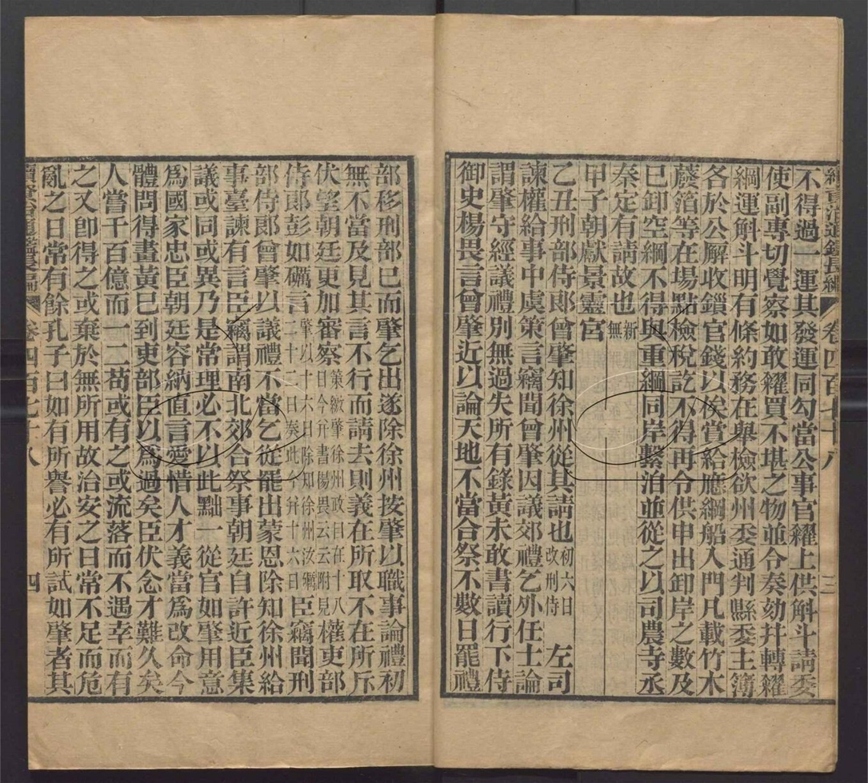 續資治通鑑長編
卷四百七十八
三
不得過一運其發運同勾當公事官糴上供斛斗請委
使副專切覺察如敢糴買不堪之物並合奏劾幷轉糴
綱運斛斗明有條約務在舉檢欲州委通判縣委主簿
各於公廨收鎖官錢以俟賞給應綱船入門凡載竹木
蘆䈥等在場點檢稅訖不得再令供申出卸岸之數及
已卸空綱不得與重綱同岸繫泊並從之以司農寺丞
秦定有請故也新無
甲子朝獻景靈宮
乙丑刑部侍郎曾肇知徐州從其請也初六日改刑侍左司
諫權給事中虞策言竊聞曾肇因議郊禮乞外任士論
謂肇守經議禮別無過失所有錄黃未敢書讀行下侍
御史楊畏言曾肇近以論天地不當合祭不數日罷禮
部移刑部已而肇乞出遂除徐州按肇以職事論禮初
無不當及見其言不行而請去則義在所取不在所斥
伏望朝廷更加審察策繳肇徐州政目在十八日今幷書楊畏云云附見權吏部
侍郎彭如礪言肇以十六日除知徐州汝礪二十二日奏此今幷十六日臣竊聞刑
部侍郎曾肇以議禮不當乞從罷出蒙恩除知徐州給
事臺諫有言臣竊謂南北郊合祭事朝廷自許近臣集
議或同或異乃是常理必不以此黜一從官如肇用意
為國家忠臣朝廷容納直言愛惜人才義當為改命今
體問得畫黃已到吏部臣以為過矣臣伏念才難久矣
人當千百億而一二苟或有之或流落而不遇幸而有
之又卽得之或棄於無所用故治安之日常不足而危
亂之日常有餘孔子曰如有所譽必有所試如肇者其
續資治通鑑長編
卷四百七十八
四